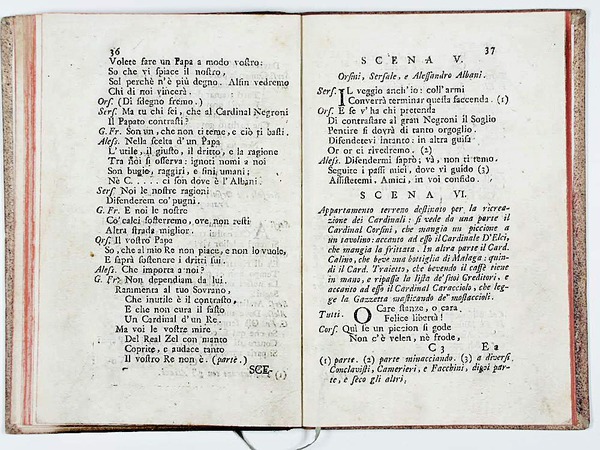 36
Volete fare un Papa a modo vostro:
So che vi spiace il nostro,
Sol perchè n'è più degno. Alfin vedremo
Chi di noi vincerà.
Ors. (Di sdegno fremo.)
Sers. Ma tu chi sei, che al Cardinal Negroni
Il Papato contrasti?
G. Fr. Son un, che non ti teme, e ciò ti basti.
Aless. Nella scelta d'un Papa
L'utile, il giusto, il dritto, e la ragione
Tra noi si osserva: ignoti nomi a noi
Son bugie, raggiri, e fini umani;
Nè C..... ci son dove è l'Albani.
Sers. Noi le nostre ragioni
Difenderem co' pugni.
G. Fr. E noi le nostre
Co' calci sosterremo, ove non resti
Altra strada miglior.
Ors. Il vostro Papa
So, che al mio Re non piace, e non lo vuole,
E saprà sostenere i dritti sui.
Aless. Che importa a noi?
G. Fr. Non dependiam da lui.
Rammenta al tuo Sovrano,
Che inutile è il contrasto,
E che non cura il fasto
Un Cardinal d'un Re.
Ma voi le vostre mire,
Del Real Zel con manto
Coprite, e audace tanto
Il vostro Re non è. (parte.)
SCE-
37
SCENA V.
Orsini, Sersale, e Alessandro Albani.
Sers. IL veggio anch'io: coll'armi
Converrà terminar questa faccenda. (1)
Ors. E se v'ha chi pretenda
Di contrastare al gran Negroni il Soglio
Pentire si dovrà di tanto orgoglio.
Difendetevi intanto: in altra guisa
Or or ci rivedremo. (2)
Aless. Difendermi saprò; và, non ti temo.
Seguite i passi miei, dove vi guido (3)
Assistetemi. Amici, in voi confido.
SCENA VI.
Appartamento terreno destinato per la ricrea-
zione dei Cardinali: si vede da una parte il
Cardinal Corsini, che mangia un piccione a
un tavolino: accanto ad esso il Cardinale D'Elci,
che mangia la frittata. In altra parte il Card.
Calino, che beve una bottiglia di Malaga: quin-
di il Card. Traietto, che bevendo il caffè tiene
in mano, e ripassa la lista de' suoi Creditori, e
accanto ad esso il Cardinale Caracciolo, che leg-
ge la Gazzetta masticando de' mostaccioli.
Tutti. O Care stanze, o cara
Felice libertà!
Cors. Quì se un piccion si gode
Non c'è velen, nè frode,
C 3 E a
(1) parte. (2) parte minacciando. (3) a diversi
Conclavisti, Camerieri, e Facchini, di poi par-
te, e seco gli altri,